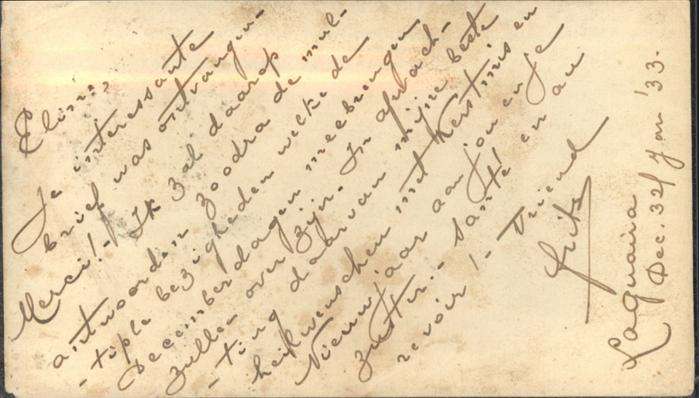 Elinu,
Je interessante
brief was ontvangen-
Merci!- Ik zal daarop
antwoorden zoodra de mul-
-tiple bezigheden welke de
Decemberdagen meebrengen
zullen over zijn. In afwach-
-ting daarvan mijne beste
heilwenschen met Kerstmis en
Nieuwjaar aan jou en je
zuster.- Santé! en au
revoir!- Vriend
Fritz
La Guaira
Dec. 32/Jan '33.